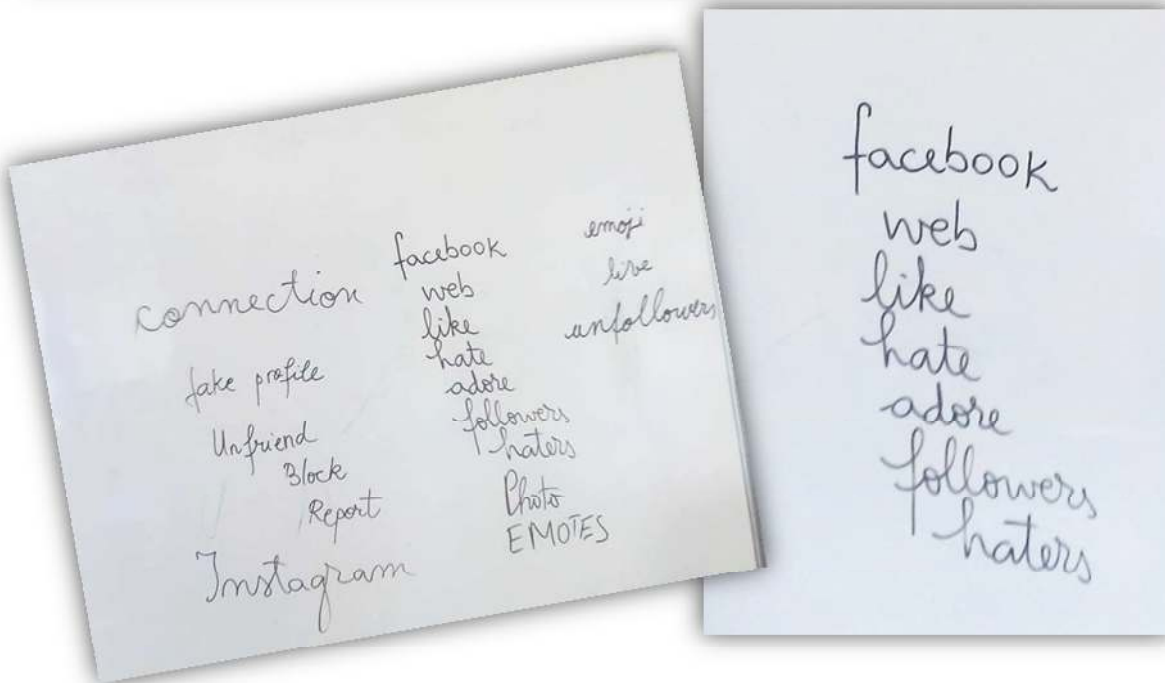 connection
fake profile
Unfriend
Block
Report
Instagram
facebook
web
like
hate
adore
followers
haters
Photo
EMOTES
emoji
live
unfollowers
facebook
web
like
hate
adore
followers
haters